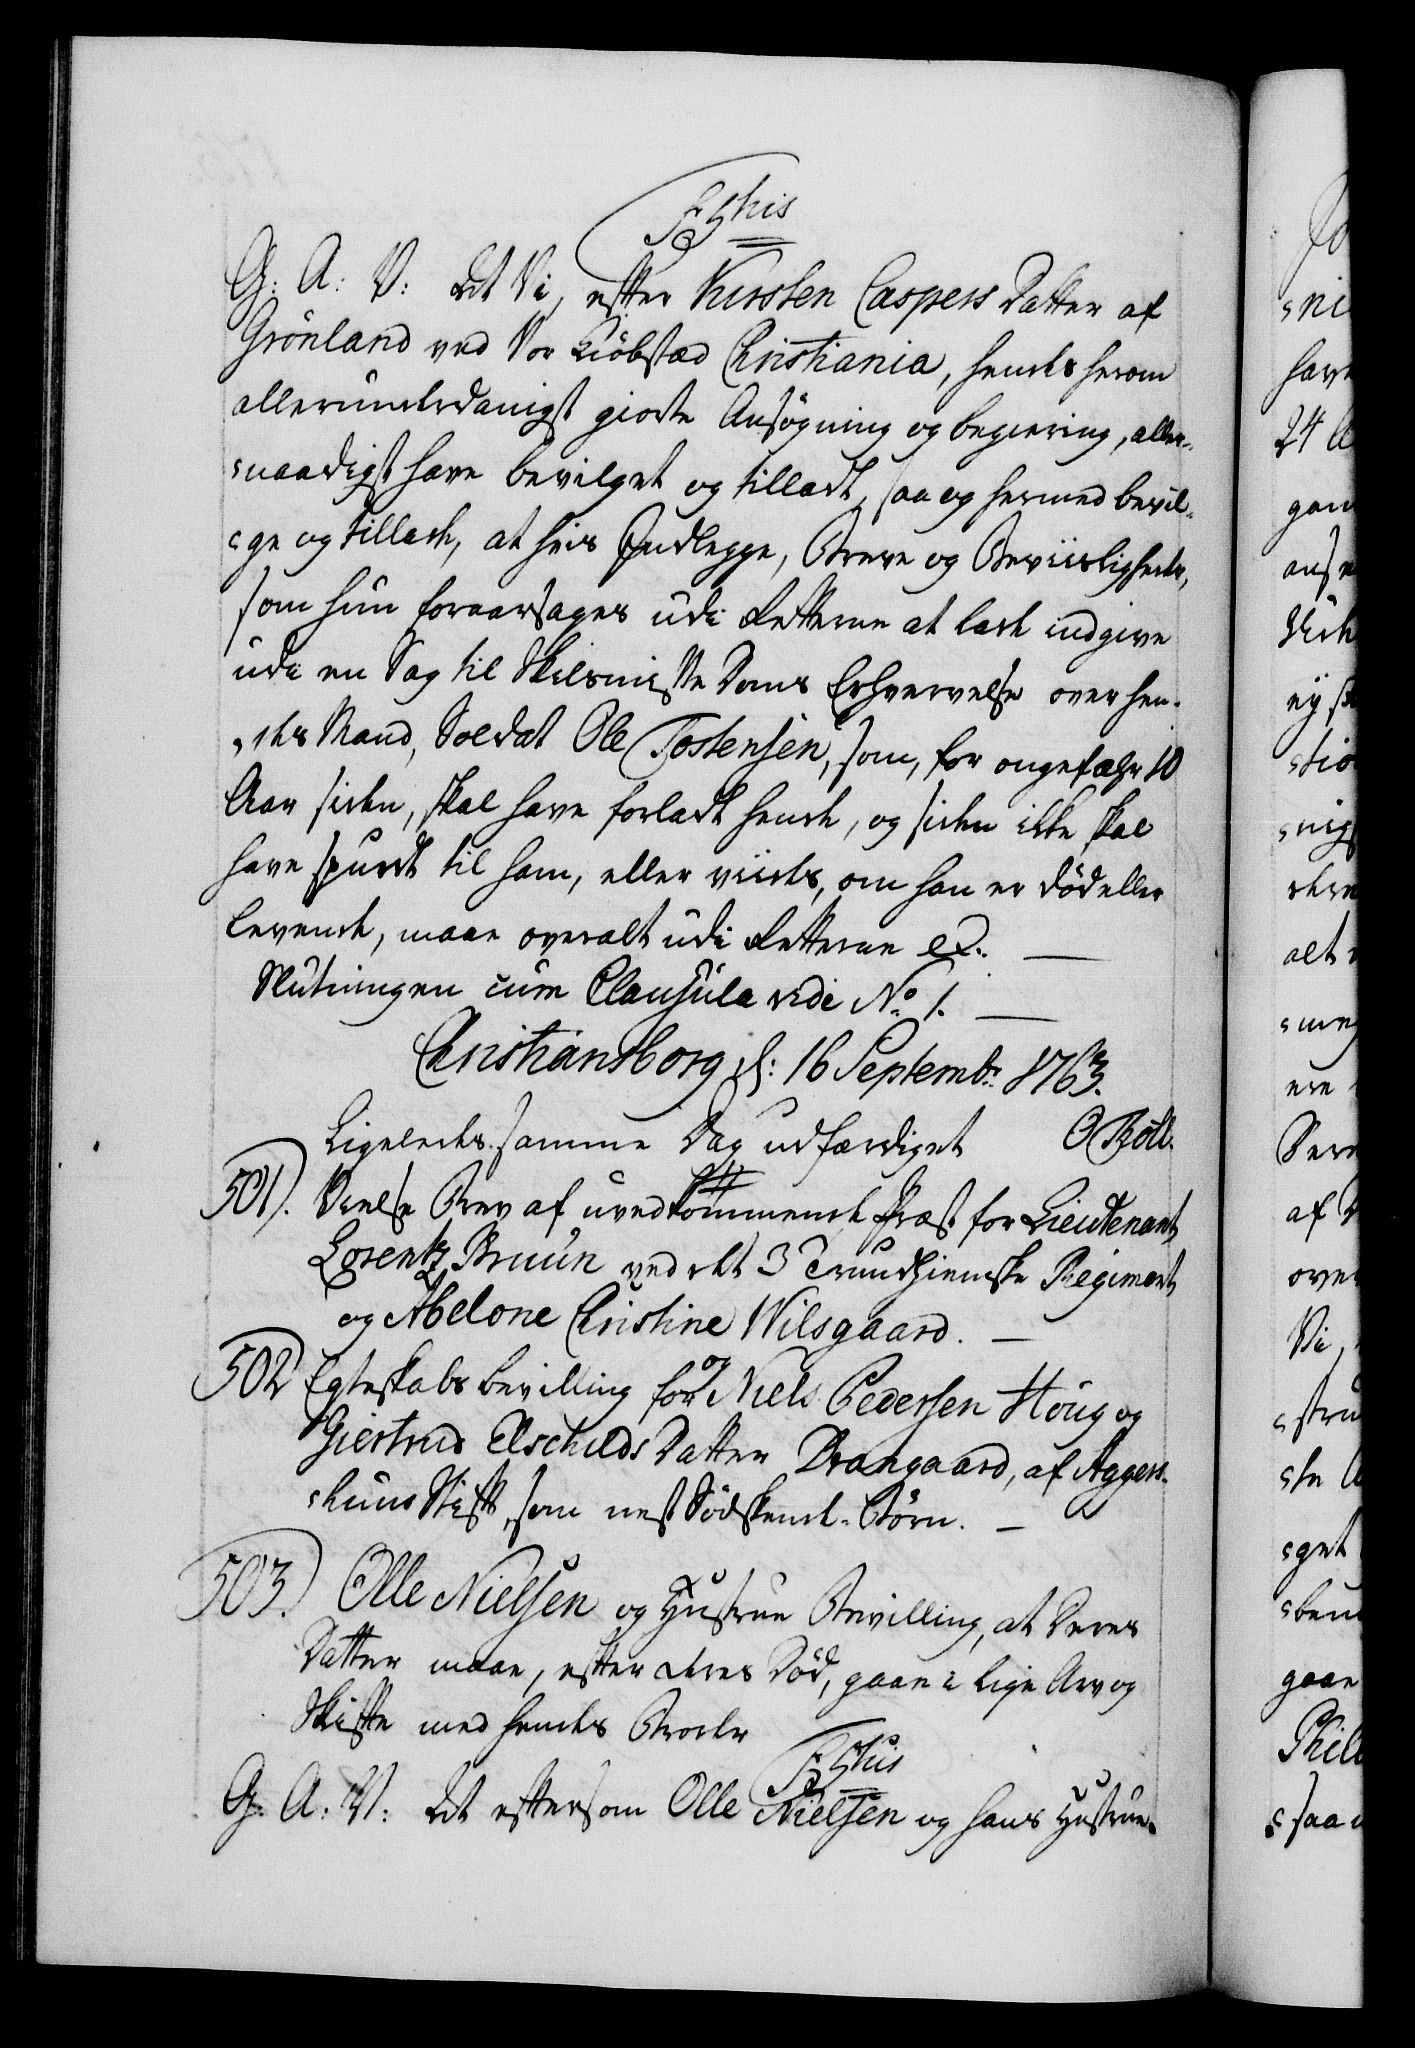 F 5this
G: A: V: At Vi, efter Kirsten Caspers Datter af
Grönland ved Vor Kiöbstæd Christiania, hendes herom
allerunderdanigst giorte Ansøgning og begiering, aller-
naadigst have bevilget og tilladt, saa og hermed bevil-
ge og tillade, at hvis Indlegge, Breve og Beviisligheder,
som hun foraarsages udi Retterne at lade indgive
udi en Sag til Skilsmisse Doms Erhvervelse over hen-
des Mand, Soldat Ole Tostensen, som, for ongefæhr 10
Aar siden, skal have forladt hende, og siden ikke skal
have spurdt til ham, eller viides, om han er död eller
levende, maae overalt udi Retterne etc.
Slutningen cum Clausula vide No 1.
Christiansborg d: 16 Septembr 1763.
Ligeledes samme Dag udfærdiget
501). Vielse Brev af uvedkommende Præst for Lieutenant
Lorentz Bruun ved det 3 Trundhiemske Regiment
og Abelone Christine Wilsgaard.
502 Egteskabs bevilling for og Niels Pedersen Höug og
Giertrud Elschilds Datter Drangaard, af Aggers-
huus Stift, som nest Södskende-Börn.
503.) Olle Nielsen og Hustrue Bevilling, at Deres
Datter maae, efter deres Död, gaae i lige Arv og
Skifte med hendes Brodr
F 5thus
G: A: V: At eftersom Olle Nielsen og hans Hustrue